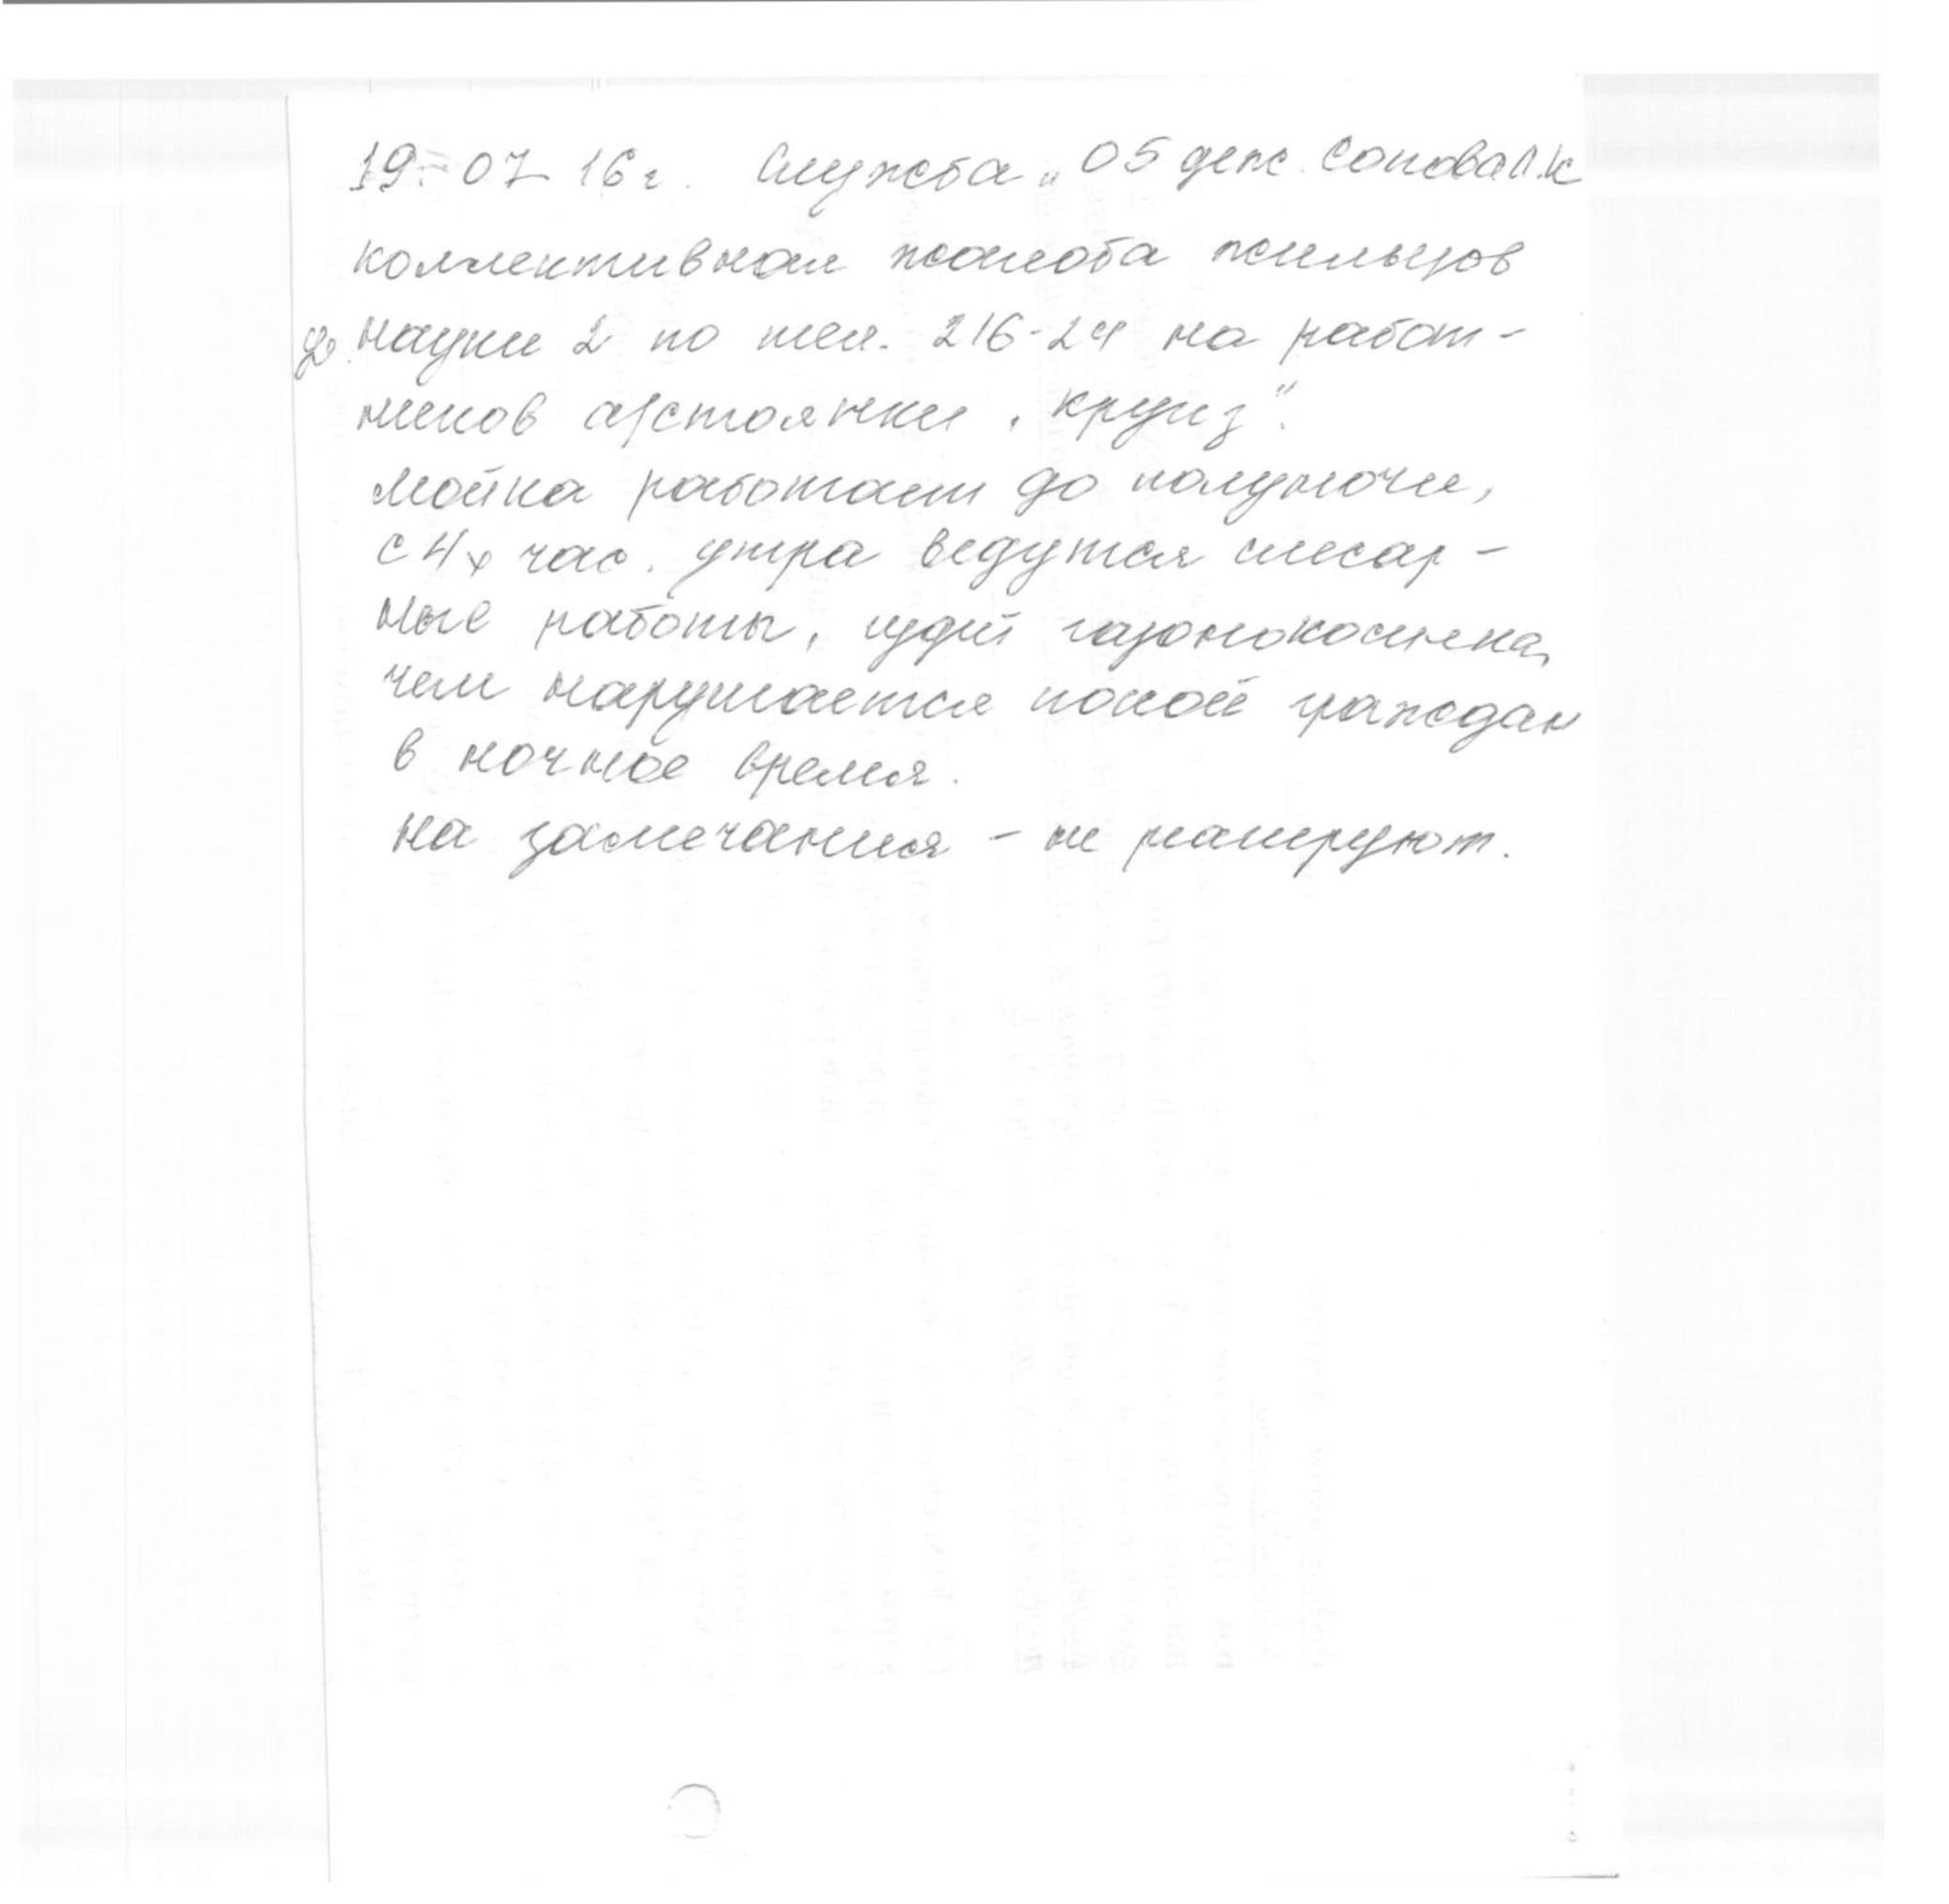 19-07-16г. Служба „05 деж.
коллективная жалоба жильцов
науки 2 по тел. 216-24 на работ-
ников а/стоянки „круиз".
мойка работает до полуночи,
с 4х час. утра ведутся слесар-
ные работы, газонокосилка,
чем нарушается покой граждан
в ночное время.
на замечания - не реагируют.